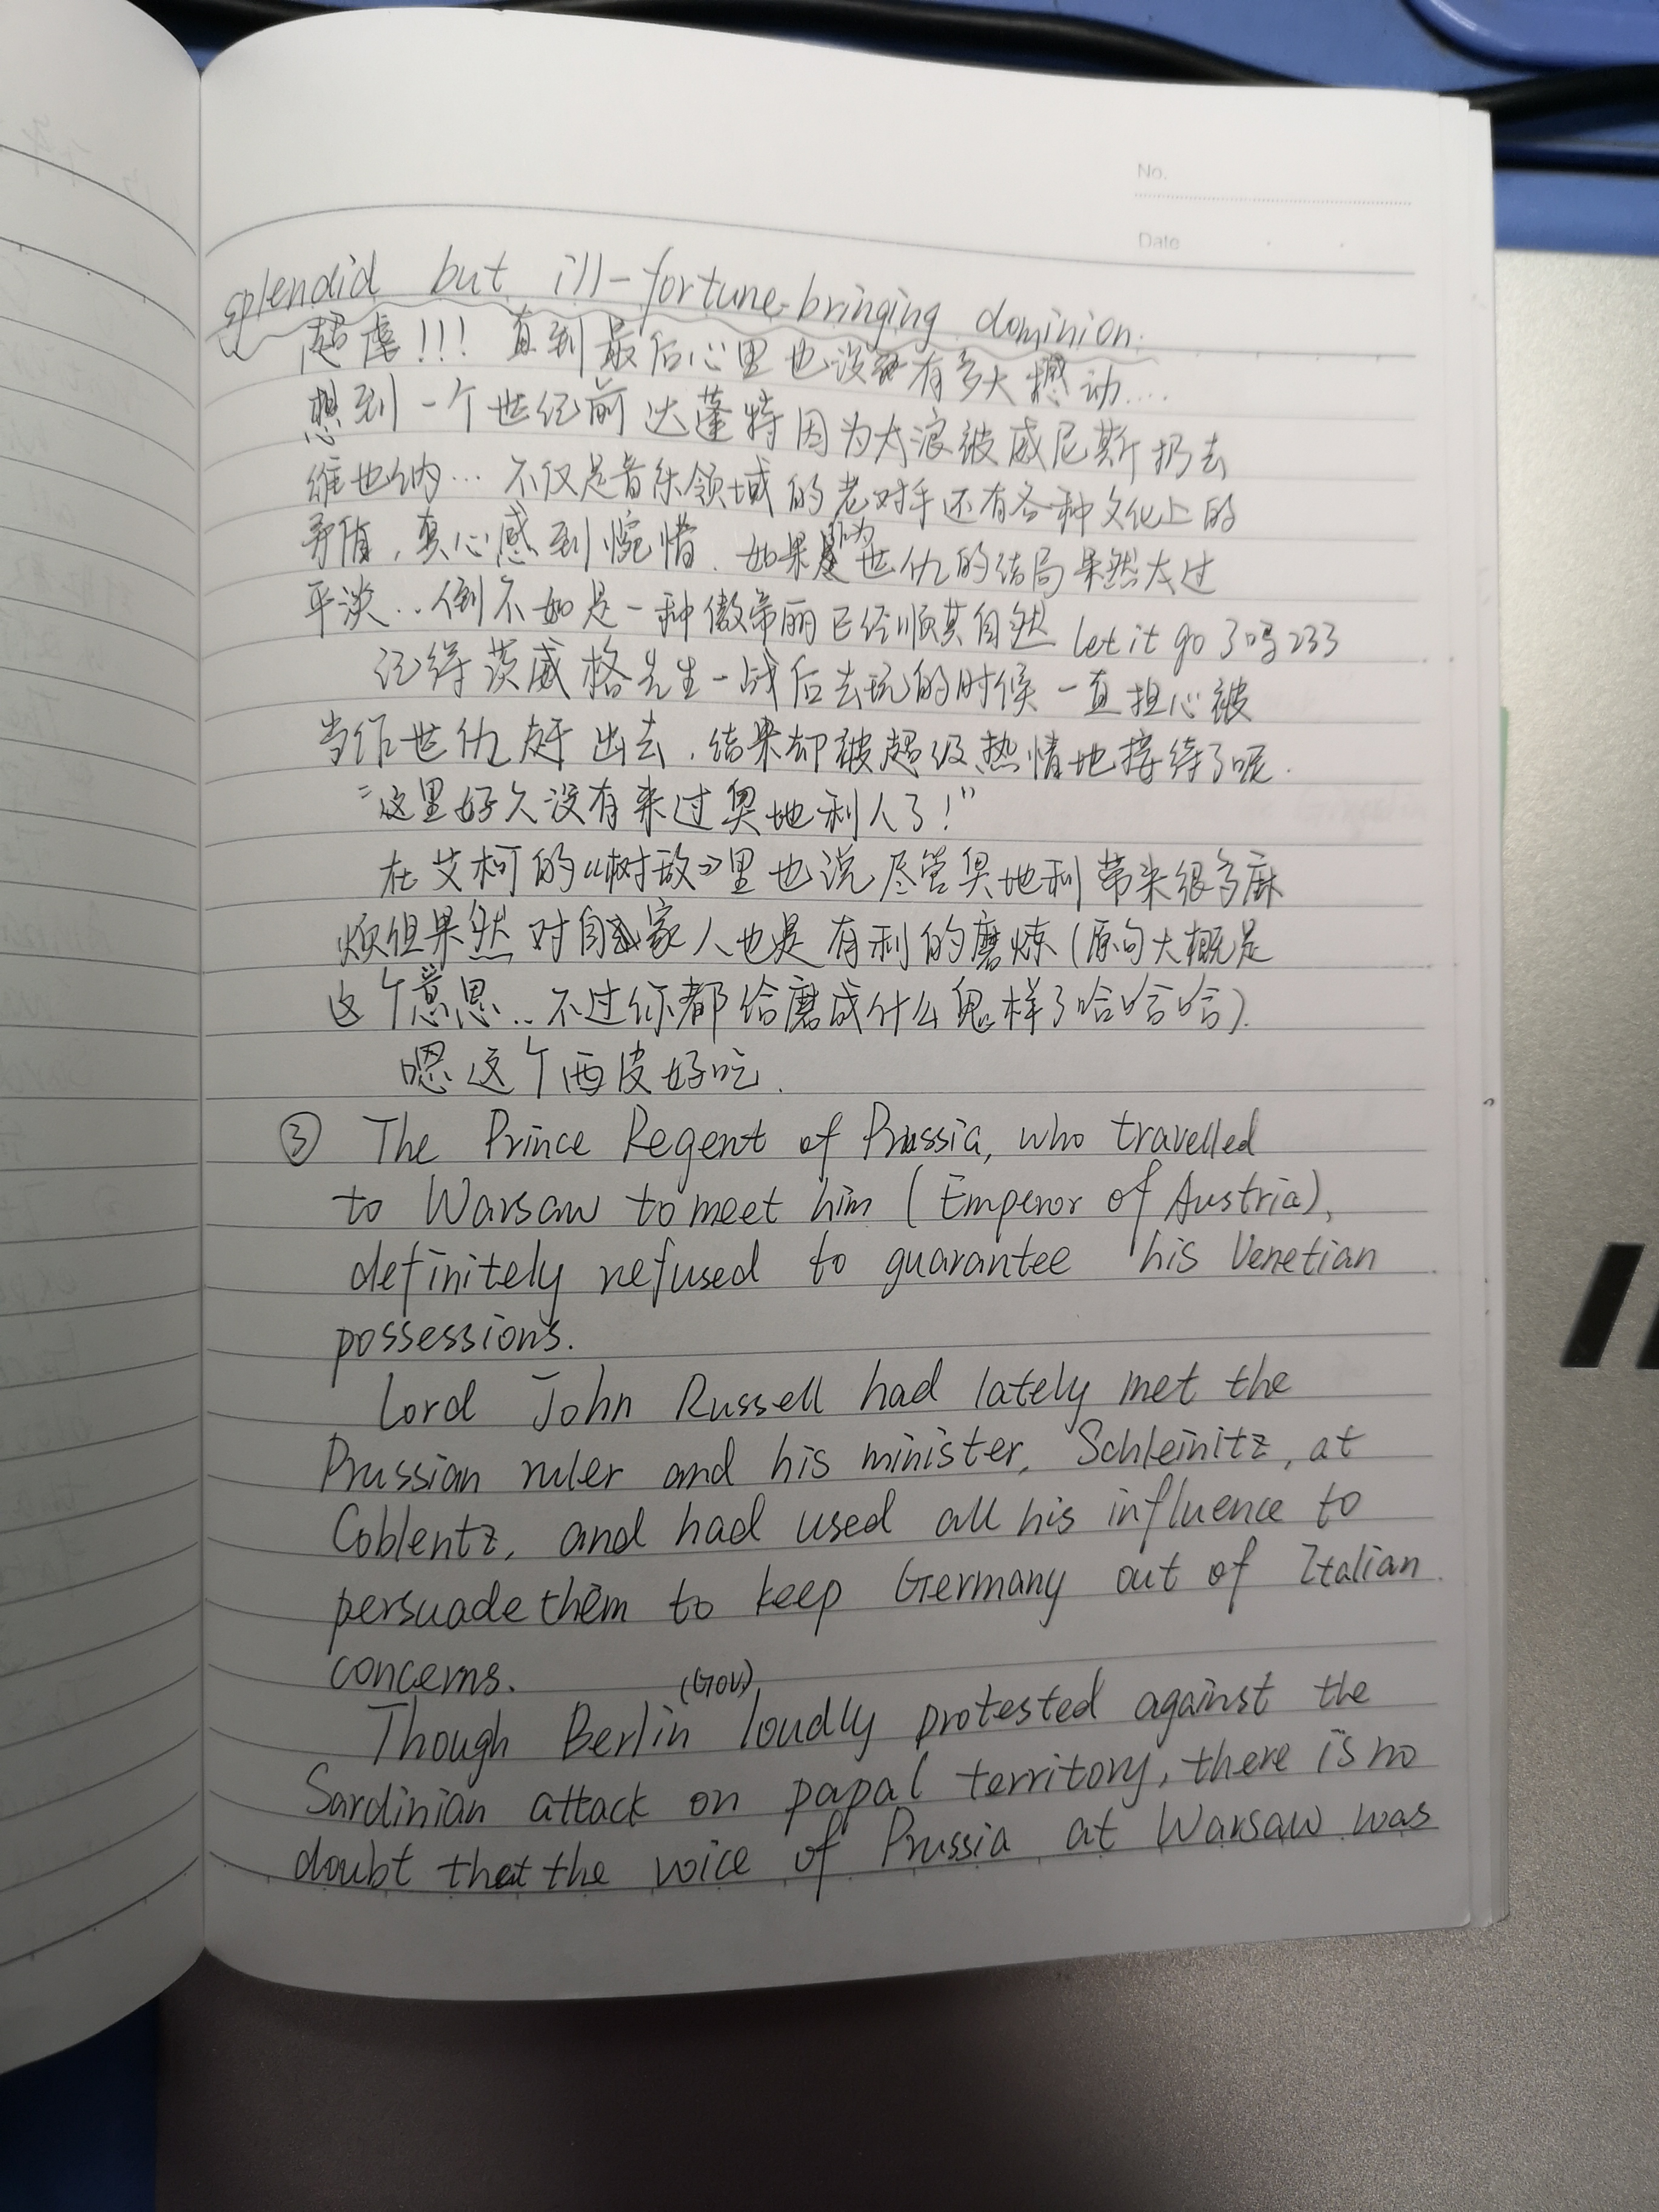 No.
Date
splendid but ill-fortune-bringing dominion.
超虐!!! 直到最后心里也没有多大撼动....
想到一个世纪前达蓬特因为太浪被威尼斯扔去
维也纳... 不仅是音乐领域的老对手还有各种文化上的
矛盾,真心感到惋惜. 如果作为世仇的结局果然太过
平淡...倒不如是一种傲帝丽已经顺其自然 let it go了吗233
记得茨威格先生一战后去玩的时候一直担心被
当作世仇赶出去,结果却被超级热情地接待了呢.
"这里好久没有来过奥地利人了!"
在艾柯的《树敌》里也说尽管奥地利带来很多麻
烦但果然对自家人也是有利的磨炼(原句大概是
这个意思...不过你都给磨成什么鬼样了哈哈哈).
嗯这个西皮好吃.
③ The Prince Regent of Prussia, who travelled
to Warsaw to meet him (Emperor of Austria),
definitely refused to guarantee his Venetian
possessions.
Lord John Russell had lately met the
Prussian ruler and his minister, Schleinitz, at
Coblentz, and had used all his influence to
persuade them to keep Germany out of Italian
concerns.
(Gov)
Though Berlin loudly protested against the
Sardinian attack on papal territory, there is no
doubt that the voice of Prussia at Warsaw was